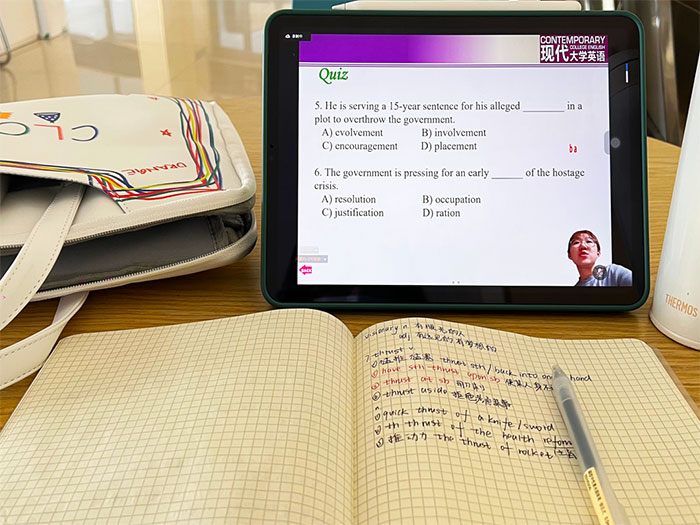 CONTEMPORARY
COLLEGE ENGLISH
现代
大学英语
Quiz
5. He is serving a 15-year sentence for his alleged ________ in a
plot to overthrow the government.
A) evolvement B) involvement
C) encouragement D) placement
b a
6. The government is pressing for an early ______ of the hostage
crisis.
A) resolution B) occupation
C) justification D) ration
CLO
ORANGE
THERMOS
visionary n 有眼光的人
adj 有远见的 有梦想的
thrust v
① 猛推 猛塞 thrust sth / back into one's hand
② have sth thrust upon sb
③ thrust at sb 用刀刺
④ thrust aside
n
① quick thrust of a knife/sword
② th thrust of the health reform
③ 推动力 the thrust of rocket